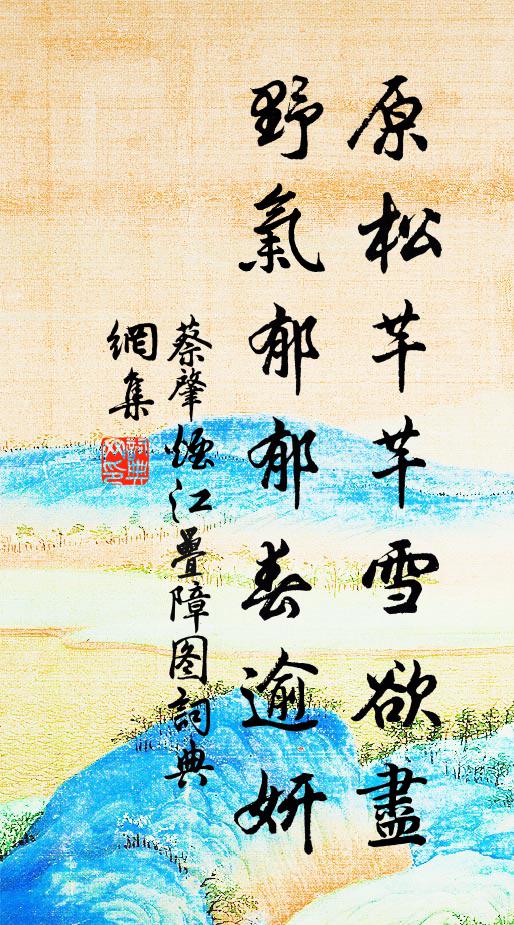 原松芊芊雪欲盡
野氣郁郁春逾妍
蔡肇煙江疊障图詞典
網集